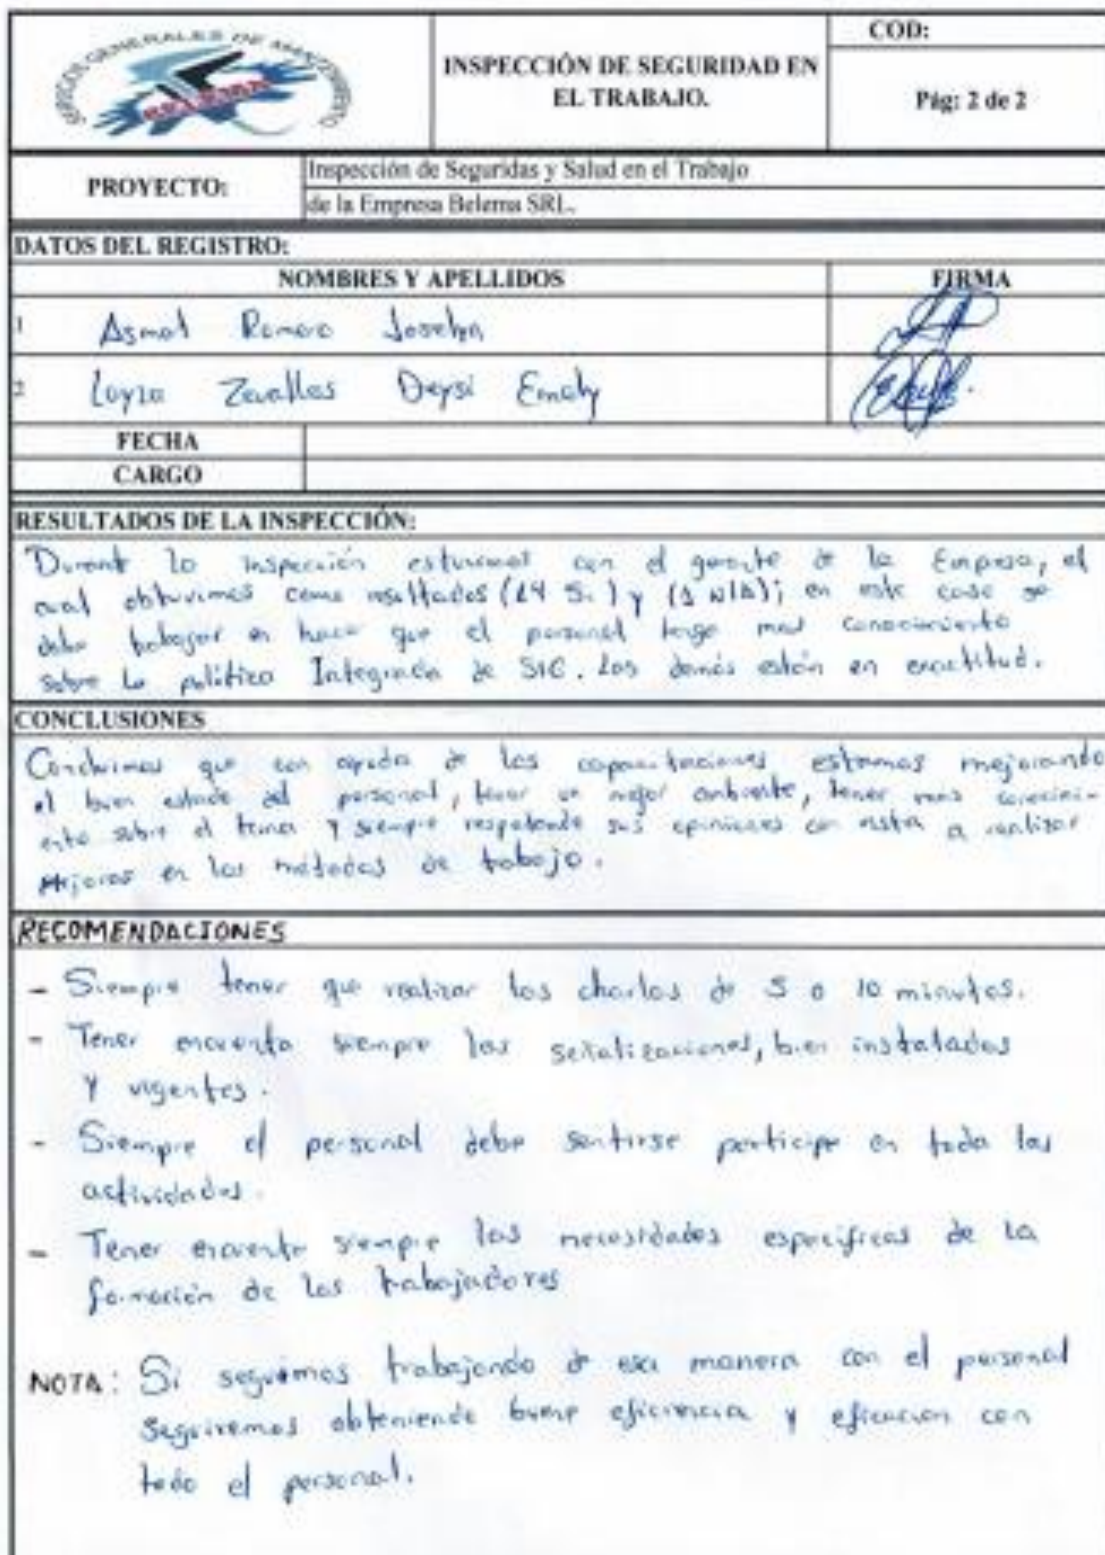 SERVICIOS GENERALES DE
BELEMA
INSPECCIÓN DE SEGURIDAD EN
EL TRABAJO.
COD:
Pág: 2 de 2
PROYECTO:
Inspección de Seguridas y Salud en el Trabajo
de la Empresa Belema SRL.
DATOS DEL REGISTRO:
NOMBRES Y APELLIDOS
FIRMA
1 Asmat Romero
2 Loyza Zavallos Deysi Emely
FECHA
CARGO
RESULTADOS DE LA INSPECCIÓN:
Durante la inspección estuvimos con el gerente de la Empresa, el
cual obtuvimos como resultados (14 Si) y (1 N/A); en este caso se
debe trabajar en hacer que el personal tenga mas conocimiento
sobre la política Integrada de SIG. Los demás están en exactitud.
CONCLUSIONES
Concluimos que con ayuda de las capacitaciones estamos mejorando
el buen estado del personal, tener un mejor ambiente, tener mas conocimi-
ento sobre el tema y siempre respetando sus opiniones con a realizar
Mejoras en los métodos de trabajo.
RECOMENDACIONES
- Siempre tener que realizar las charlas de 5 a 10 minutos.
- Tener encuenta siempre las señalizaciones, bien instalados
y vigentes.
- Siempre el personal debe sentirse participe en toda las
actividades.
- Tener encuenta siempre las necesidades específicas de la
formación de los trabajadores
NOTA: Si seguimos trabajando de esa manera con el personal
Seguiremos obteniendo buena eficiencia y con
todo el personal.